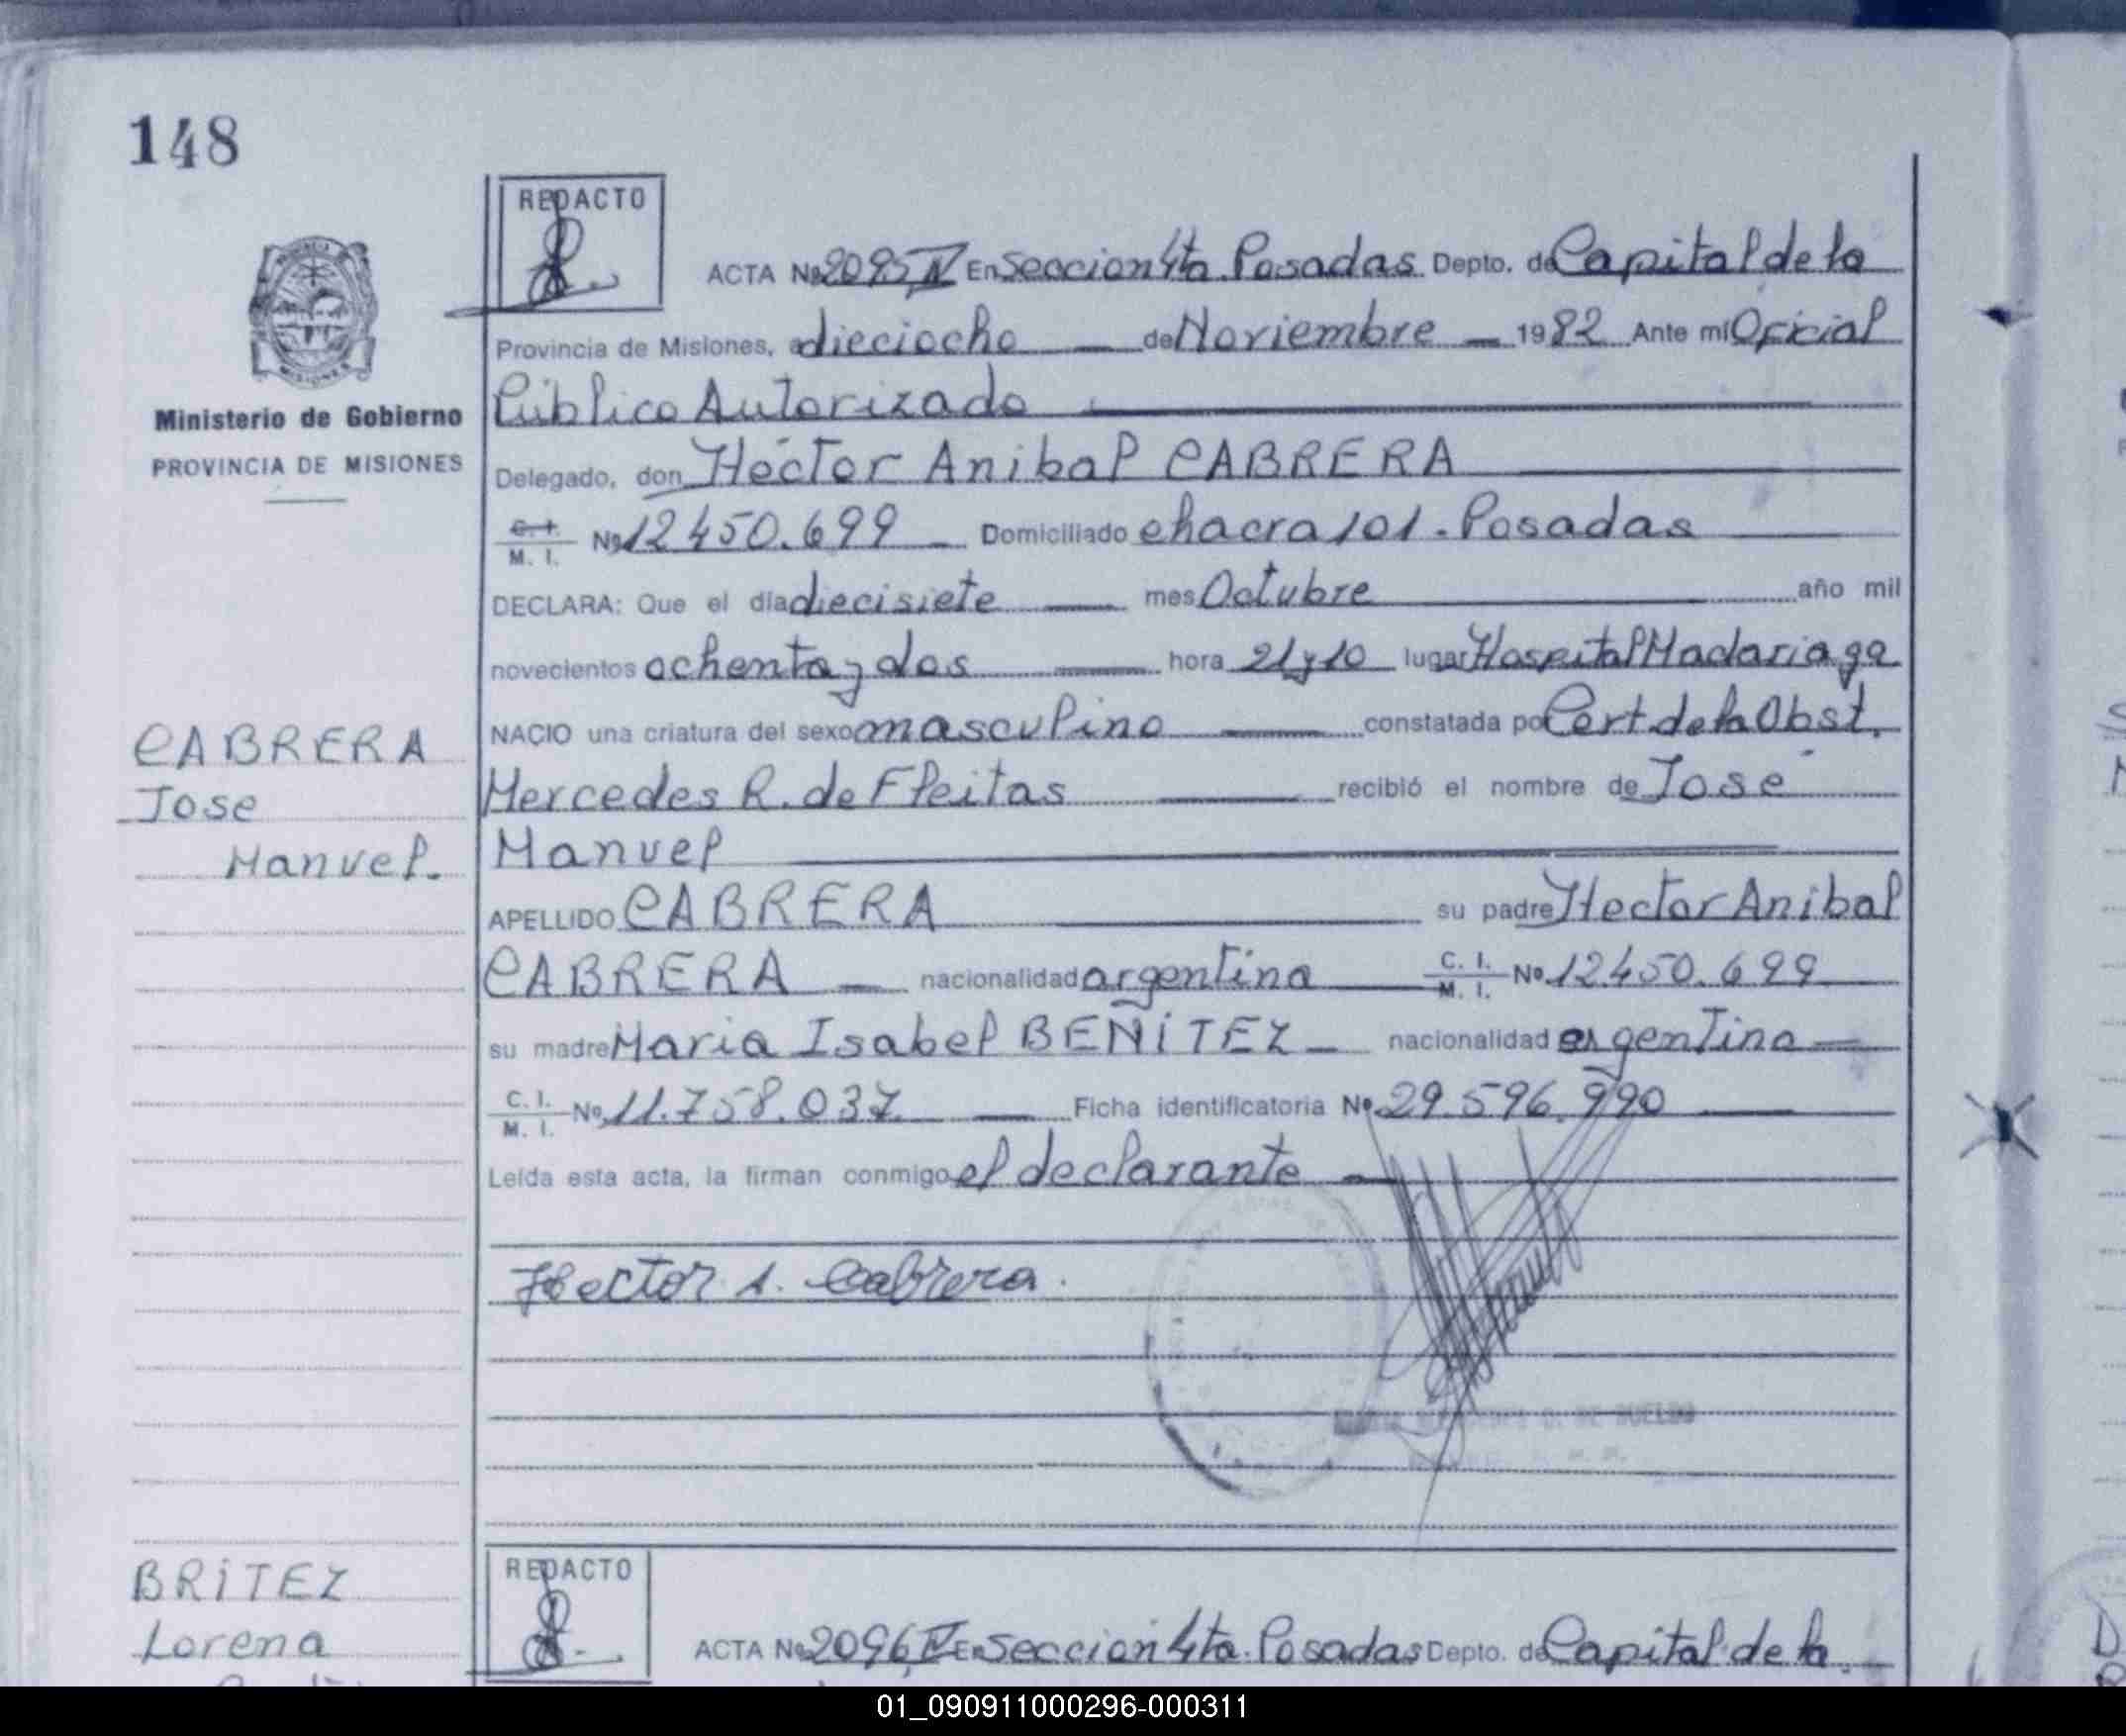 148
REDACTO
ACTA Nº 2095 IV En Seccion 4ta. Posadas Depto. de Capital de la
Provincia de Misiones, a dieciocho de Noviembre 1982 Ante mi Oficial
Público Autorizado
Ministerio de Gobierno
PROVINCIA DE MISIONES
Delegado, don Héctor Anibal CABRERA
C. I. M. I. Nº 12.450.699 Domiciliado chacra 101. Posadas
DECLARA: Que el día diecisiete mes Octubre año mil
novecientos ochenta y dos hora 21 y 10 lugar Hospital Madariaga
NACIO una criatura del sexo masculino constatada por Cert de la Obst.
CABRERA
Jose
Manuel.
Mercedes R. de Fleitas recibió el nombre de José
Manuel
APELLIDO CABRERA su padre Hector Anibal
CABRERA nacionalidad argentina C. I. M. I. Nº 12.450.699
su madre Maria Isabel BENÍTEZ nacionalidad argentina
C. I. M. I. Nº 11.758.037 Ficha identificatoria Nº 29.596.990
Leída esta acta, la firman conmigo el declarante
Hector A. Cabrera.
BRITEZ
Lorena
REDACTO
ACTA Nº 2096 IV En Seccion 4ta. Posadas Depto. de Capital de la
01_090911000296-000311